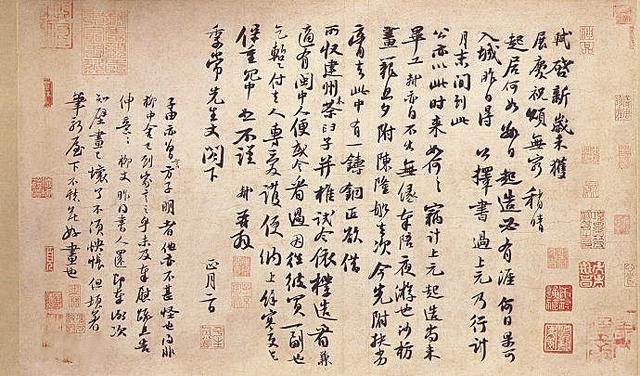 軾啓新歲未獲
展慶祝頌無窮稍晴
起居何如數日起造必有涯何日果可
入城昨日得 公擇書過上元乃行計
月末間到此
公亦以此時來如何々竊計上元起造尚未
畢工軾亦自不出無緣奉陪夜遊也沙枋
畫籠旦夕附陳隆船去次今先附扶劣
膏去此中有一鑄銅匠欲借
所收建州木茶臼子并椎試令依樣造看兼
適有閩中人便或令看過因往彼買一副也
乞暫付去人專愛護便納上餘寒更乞
保重冗中恕不謹 軾再拜
季常先生丈閣下
正月二日
子由亦曾言方子明者他亦不甚怪也得非
柳中舍已到家言之乎未及奉慰疏且告
伸意々柳丈昨得書人還即奉謝次
知壁畫已壞了不須怏悵但頓着
筆新屋下不愁無好畫也